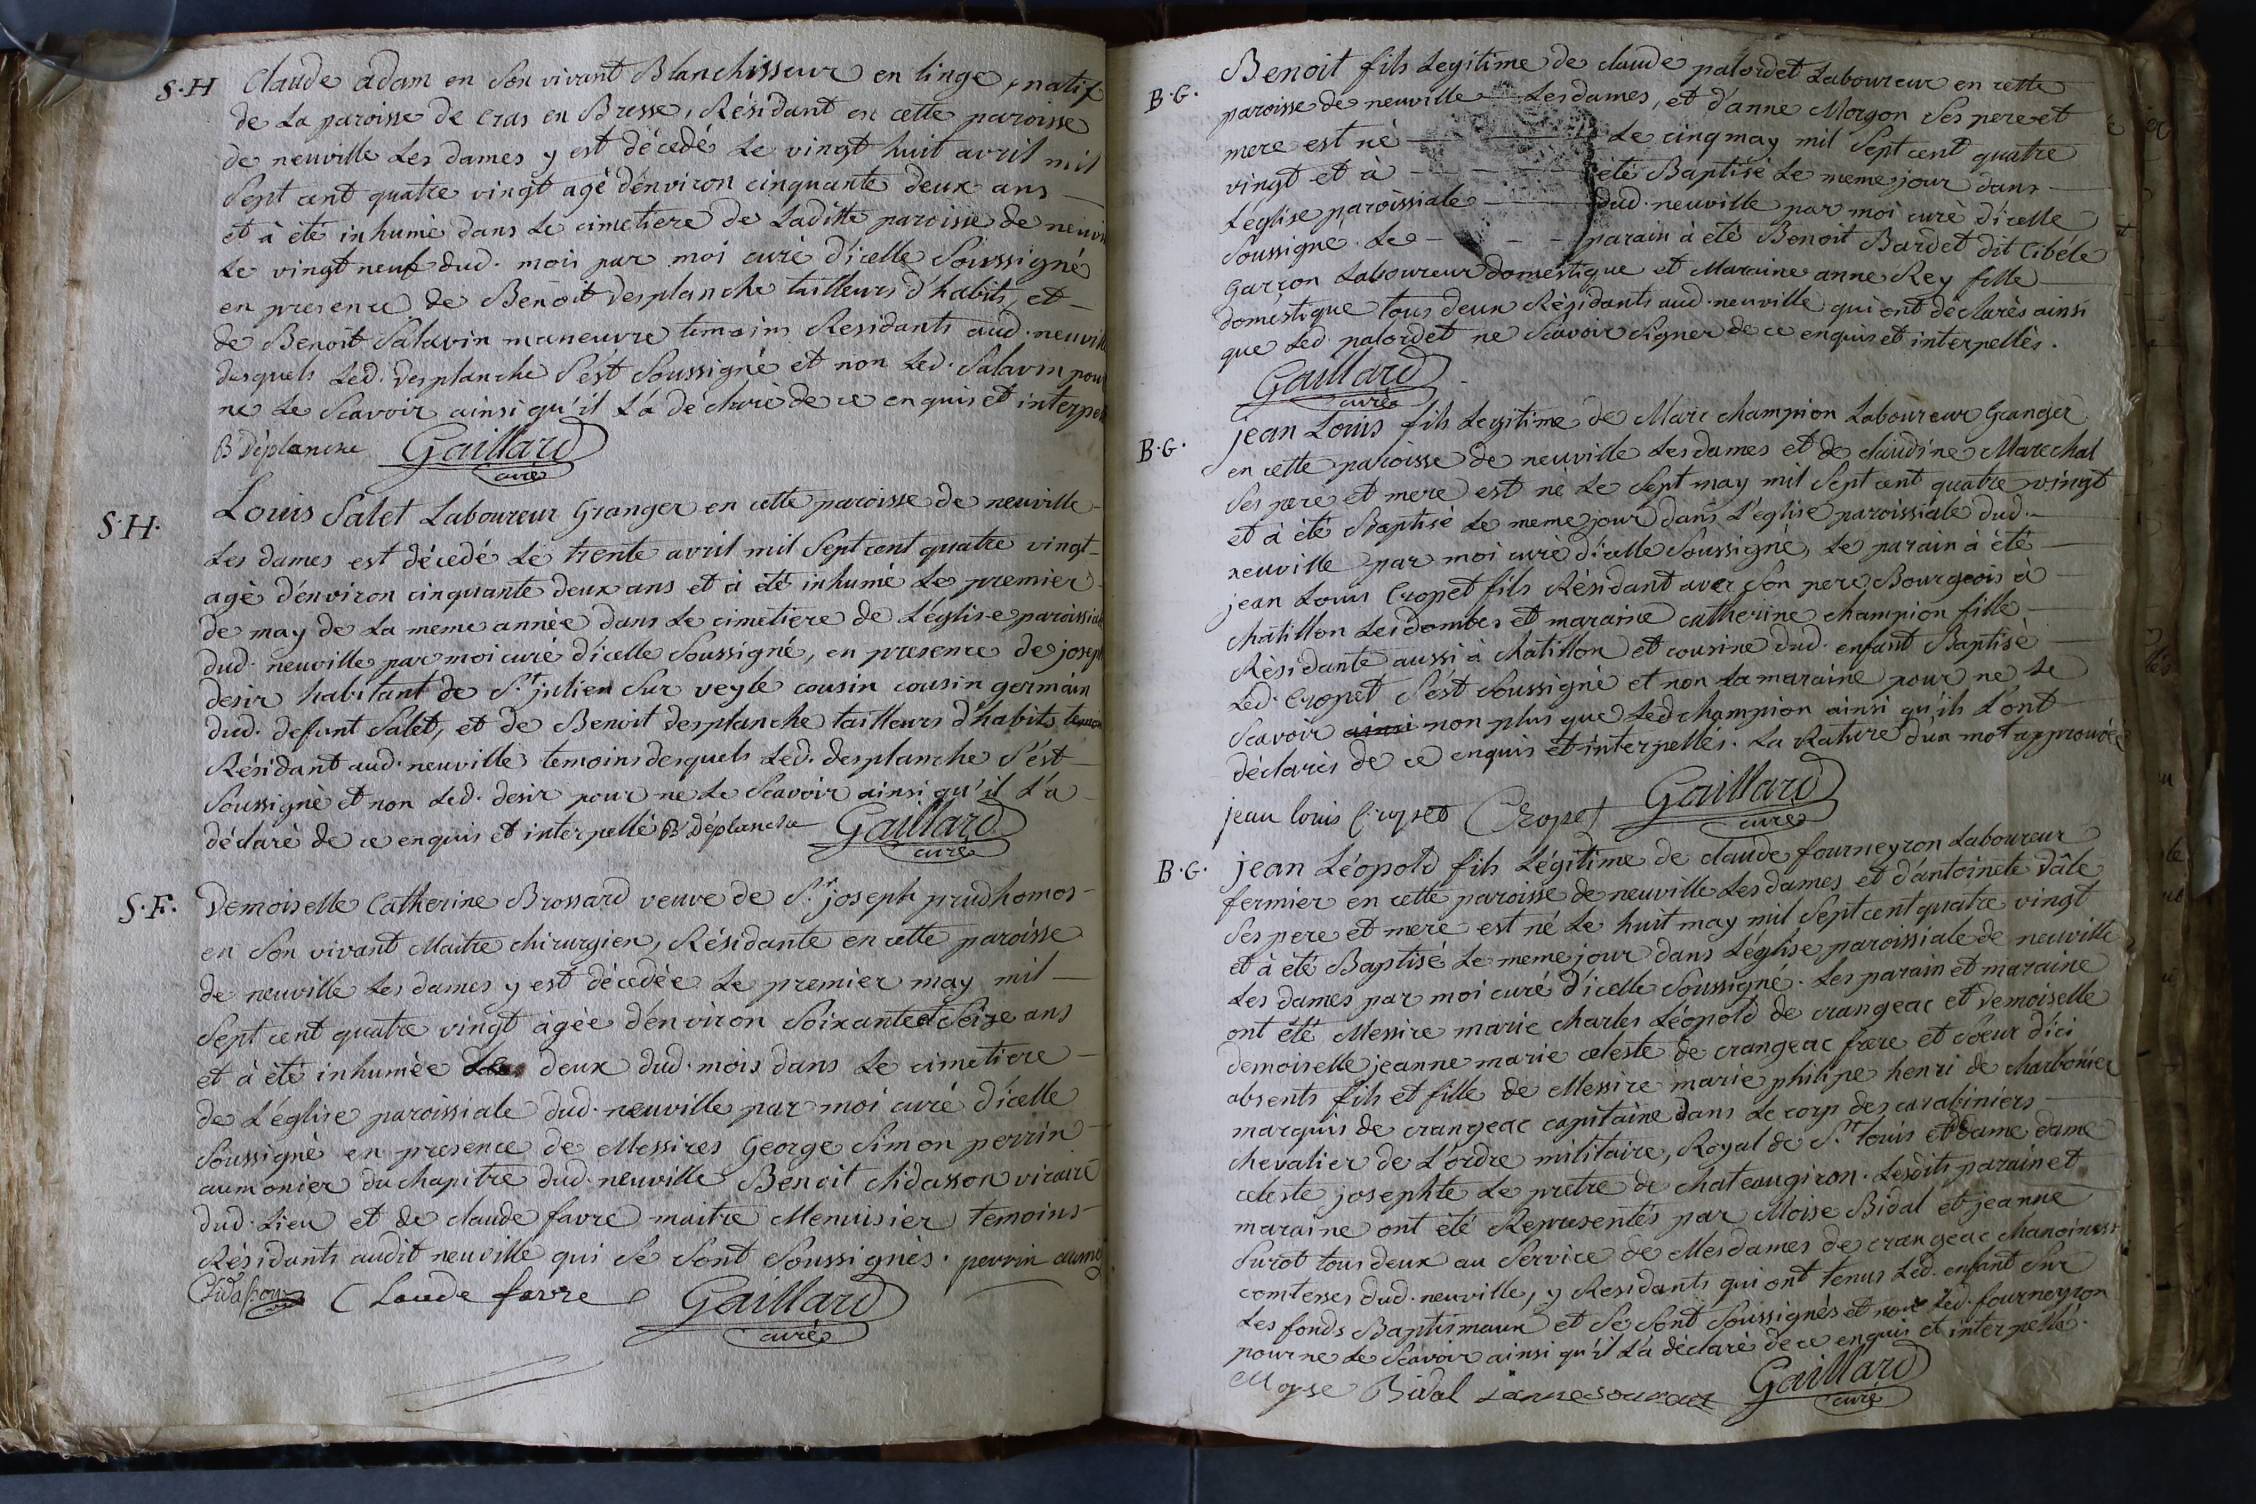 S.H Claude adam en Son vivant Blanchisseur en linge, natif
de La paroisse de Cras en Bresse, Résidant en cette paroisse
de neuville Les dames y est décedé Le vingt huit avril mil
Sept cent quatre vingt agé d'environ cinquante deux ans
et à été inhumé dans Le cimetiere de Laditte paroisse de neuvi
Le vingt neuf dud. mois par moi curé d'icelle Soussigné
en presence de Benoit desplanche tailleurs d'habits, et
de Benoit Salavin maneuvre temoins Residants aud. neuville
desquels Led. desplanche S'ést Soussigné et non Led. Salavin pour
ne Le Scavoir ainsi qu'il L'a declaré de ce enquis et interpel
B Déplanche Gaillard
curé
S.H. Louis Salet Laboureur Granger en cette paroisse de neuville
Les dames est décedé Le trente avril mil Sept cent quatre vingt
agé d'environ cinquante deux ans et à été inhumé Le premier
de may de La meme année dans Le cimetiere de L'église paroissial
dud. neuville par moi curé d'icelle Soussigné, en presence de josep
desir habitant de St. julien Sur veyle cousin cousin germain
dud. defunt Salet, et de Benoit desplanche tailleurs d'habits temoin
Résidant aud. neuville temoins desquels Led. desplanche S'ést
Soussigné et non Led. desir pour ne Le Scavoir ainsi qu'il L'a
déclaré de ce enquis et interpellé B Déplanche Gaillard
curé
S.F. Demoiselle Catherine Brossard veuve de Sr. joseph prudhomos
en Son vivant Maitre chirurgien, Résidante en cette paroisse
de neuville Les dames y est décedée Le premier may mil
Sept cent quatre vingt agée d'environ Soixante et Seize ans
et à été inhumée Le deux dud. mois dans Le cimetiere
de L'église paroissiale dud. neuville par moi curé d'icelle
Soussigné en presence de Messires George Simon perrin
aumonier du chapitre dud. neuville Benoit Chidasson vicaire
dud. Lieu et de claude favre maitre Menuisier temoins
Résidants audit neuville qui Se Sont Soussignés. perrin aumo
Chidasson Claude favre Gaillard
curé
B.G. Benoit fils Legitime de claude palordet Laboureur en cette
paroisse de neuville Les dames, et d'anne Morgon Ses pere et
mere est né Le cinq may mil Sept cent quatre
vingt et à été Baptisé Le meme jour dans
L'église paroissiale dud. neuville par moi curé d'icelle
Soussigné. Le parain à été Benoit Bardet dit Cibéle
garcon Laboureur domestique et Maraine anne Rey fille
domestique tous deux Résidants aud. neuville qui ont déclarés ainsi
que Led. palordet ne Scavoir Signer de ce enquis et interpellés.
Gaillard
curé
B.G. jean Louis fils Legitime de Marc champion Laboureur Granger
en cette paroisse de neuville Les dames et de claudine Marechal
Ses pere et mere est né Le Sept may mil Sept cent quatre vingt
et à été Baptisé Le meme jour dans L'église paroissiale dud.
neuville par moi curé d'icelle Soussigné, Le parain à été
jean Louis Cropet fils Résidant avec Son pere Bourgeois à
chatillon Les dombes et maraine catherine champion fille
Résidante aussi à chatillon et cousine dud. enfant Baptisé
Led. Cropet S'ést Soussigné et non La maraine pour ne Le
Scavoir ainsi non plus que Led champion ainsi qu'ils L'ont
déclarés de ce enquis et interpellés. La Rature d'un mot approuvée
jean louis Cropet Cropet Gaillard
curé
B.G. jean Léopold fils Légitime de claude fourneyron Laboureur
fermier en cette paroisse de neuville Les dames et d'antoinete Dâle
Ses pere et mere est né Le huit may mil Sept cent quatre vingt
et à été Baptisé Le meme jour dans L'église paroissiale de neuville
Les dames par moi curé d'icelle Soussigné. Les parain et maraine
ont été Messire marie charles Léopold de crangeac et demoiselle
demoiselle jeanne marie celeste de crangeac frere et Soeur d'ici
absents fils et fille de Messire marie philipe henri de charbonier
marquis de crangeac capitaine dans Le corp des carabiniers
chevalier de L'ordre militaire, Royal de St. Louis et dame dame
celeste josephte Le pretre de chateaugiron. Lesdits parain et
maraine ont été Representés par Moise Bidal et jeanne
Surot tous deux au Service de Mesdames de crangeac chanoinesses
comtesses dud. neuville, y Residants qui ont tenus Led. enfant Sur
Les fonds Baptismaux et Se Sont Soussignés et non Led. fourneyron
pour ne Le Scavoir ainsi qu'il L'a déclaré de ce enquis et interpellé.
Moyse Bidal Gaillard
curé